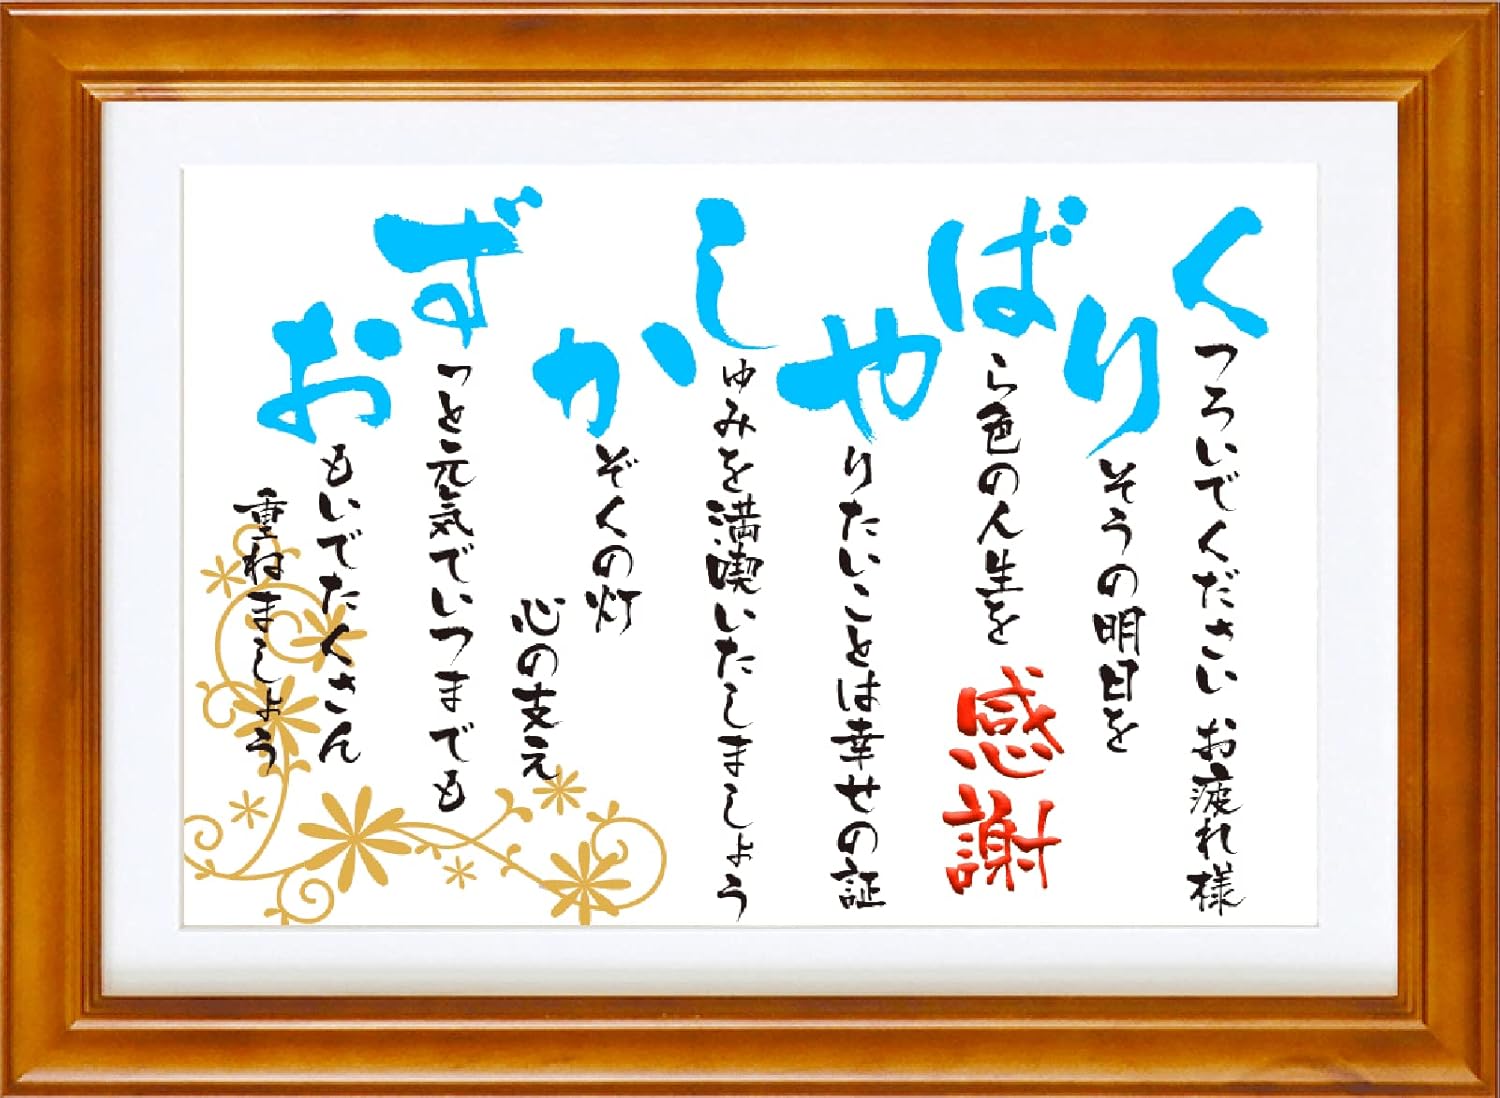 くつろいでください お疲れ様
りそうの明日を
ばら色の人生を
感謝
やりたいことは幸せの証
しゆみを満喫いたしましょう
かぞくの灯
心の支え
ずっと元気でいつまでも
おもいでたくさん
重ねましょう